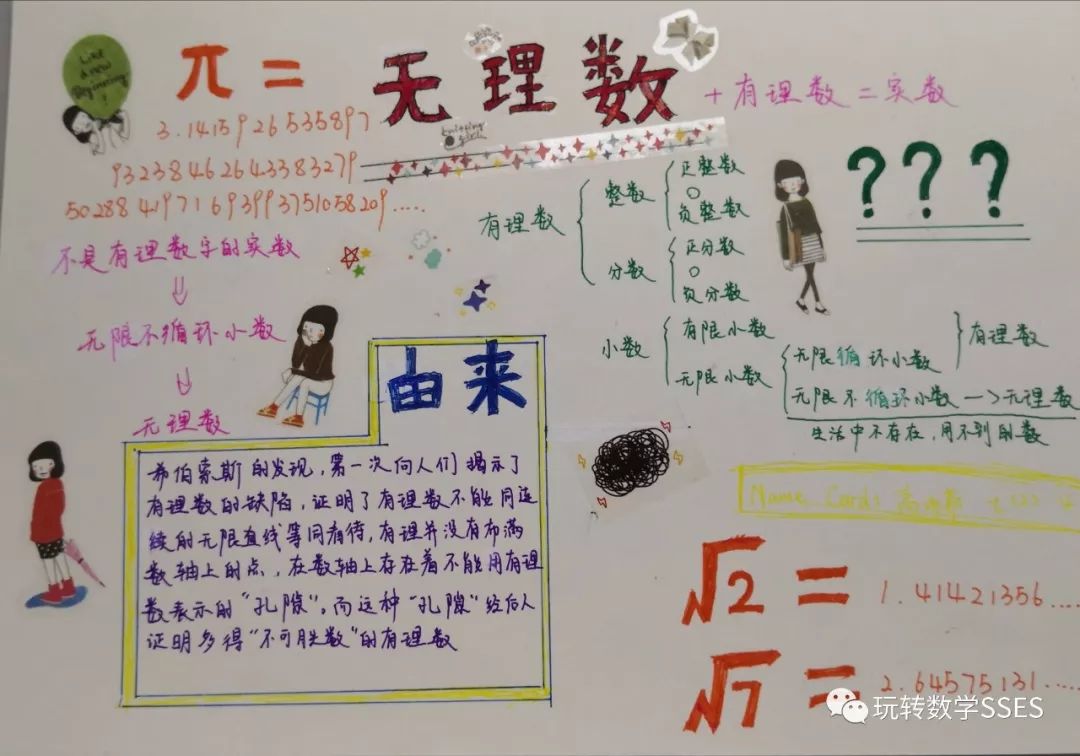 Like
a new
Beginning
!
π =
无理数
+ 有理数 = 实数
3.14159 26 535897
93238 46 26433 83279
50288 41971 69399 37510 58209.....
不是有理数字的实数
⇓
无限不循环小数
⇓
无理数
有理数
整数
正整数
0
负整数
分数
正分数
0
负分数
? ? ?
小数
有限小数
无限小数
无限循环小数
有理数
无限不循环小数 —> 无理数
生活中不存在,用不到的数
由来
希伯索斯的发现,第一次向人们揭示了
有理数的缺陷,证明了有理数不能同连
续的无限直线等同看待,有理并没有布满
数轴上的点,在数轴上存在着不能用有理
数表示的“孔隙”。而这种“孔隙”经后人
证明多得“不可胜数”的有理数
Name Card:
√2 = 1.41421356....
√7 = 2.64575131.....
玩转数学SSES